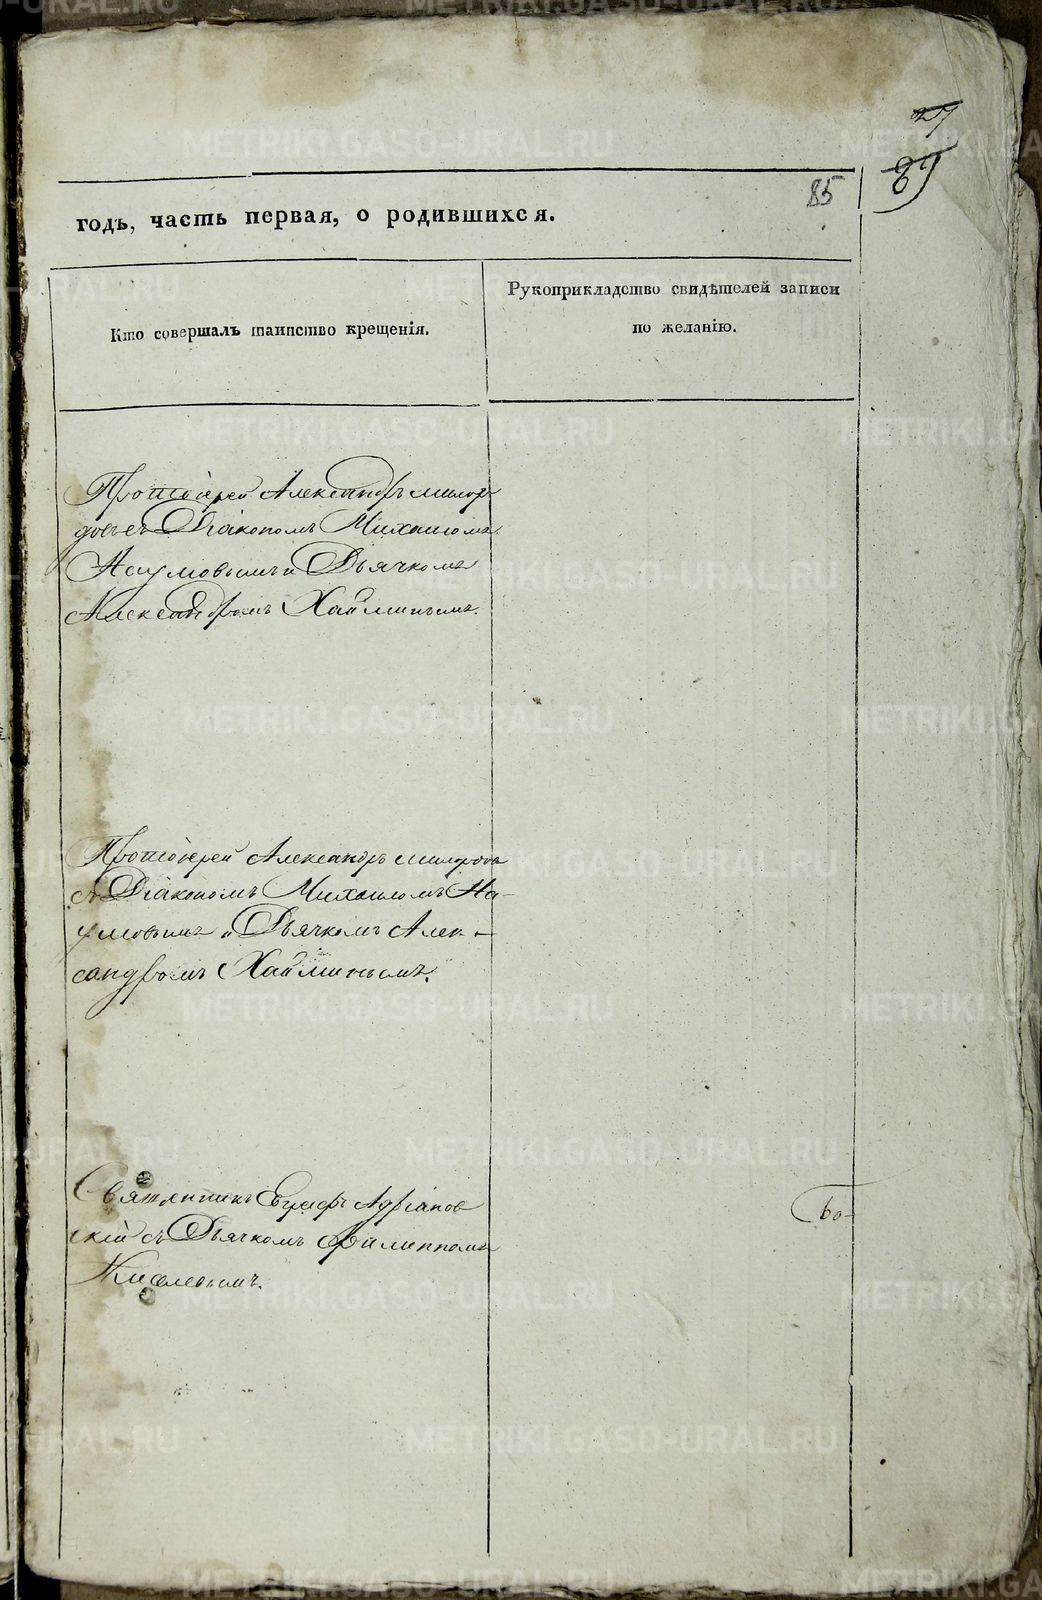 85
89
годъ, часть первая, о родившихся.
Кто совершалъ таинство крещенія.
Рукоприкладство свидѣтелей записи
по желанію.
Протоіерей Александръ Милор
довъ съ Діакономъ Михаиломъ
Наумовымъ и Дьячкомъ
Александромъ Хайминымъ.
Протоіерей Александръ Милордовъ
съ Діакономъ Михаиломъ На-
умовымъ и Дьячкомъ Алек-
сандромъ Хайминымъ.
Священникъ Евграфъ Адріанов
скій съ Дьячкомъ Филиппомъ
Киселевымъ.
METRIKI.GASO-URAL.RU